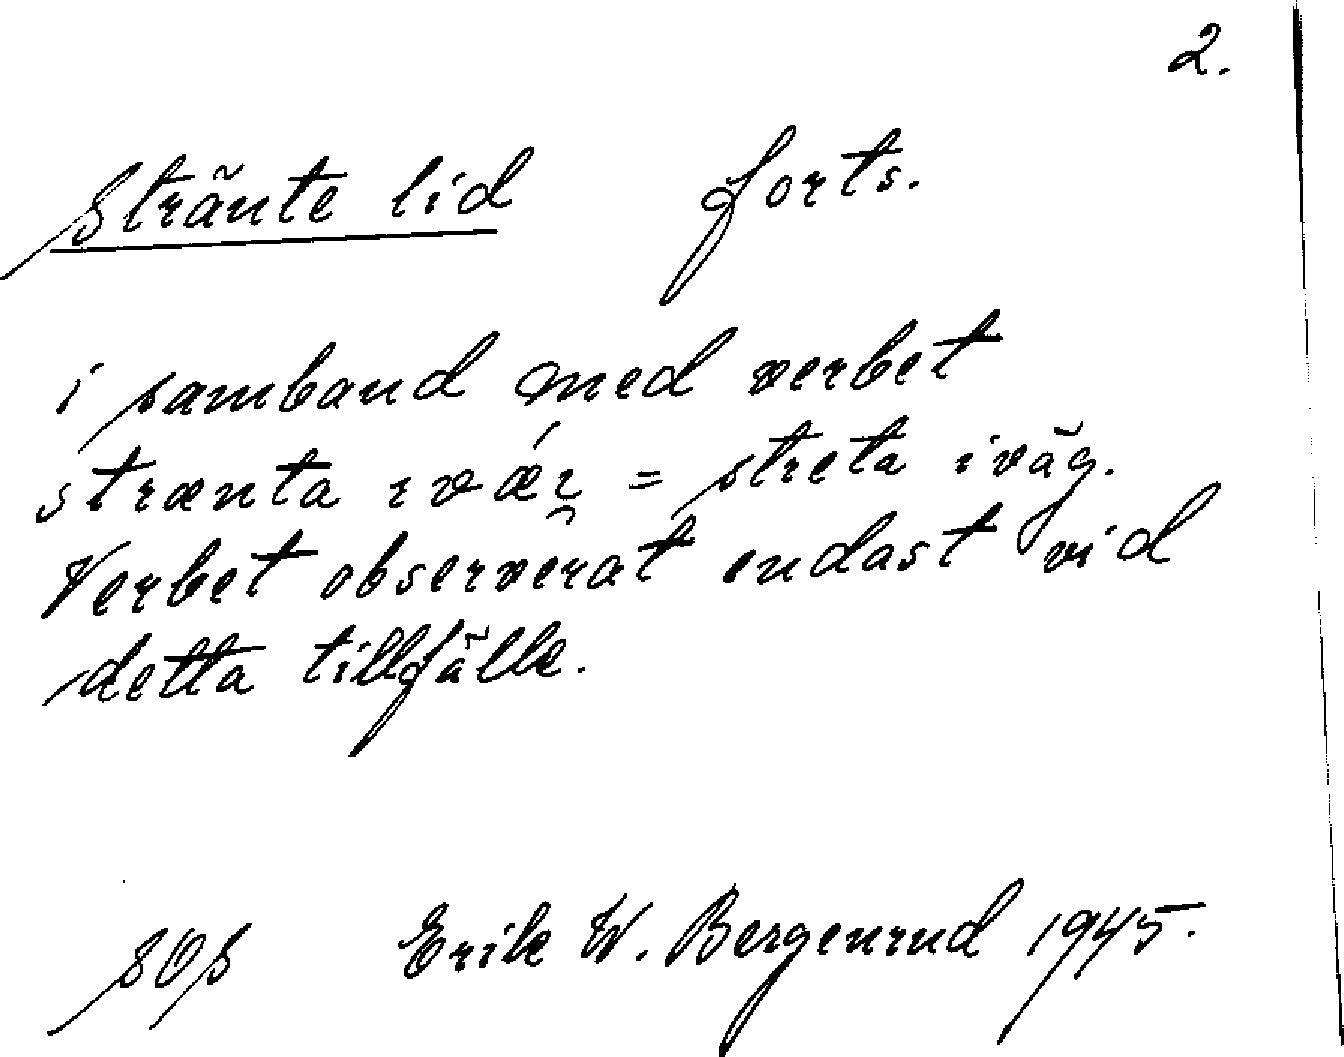 2.
Stränte lid forts.
i samband med verbet
strænta ıvǽı̯ = streta iväg.
Verbet observerat endast vid
detta tillfälle.
Erik W. Bergenrud 1945.